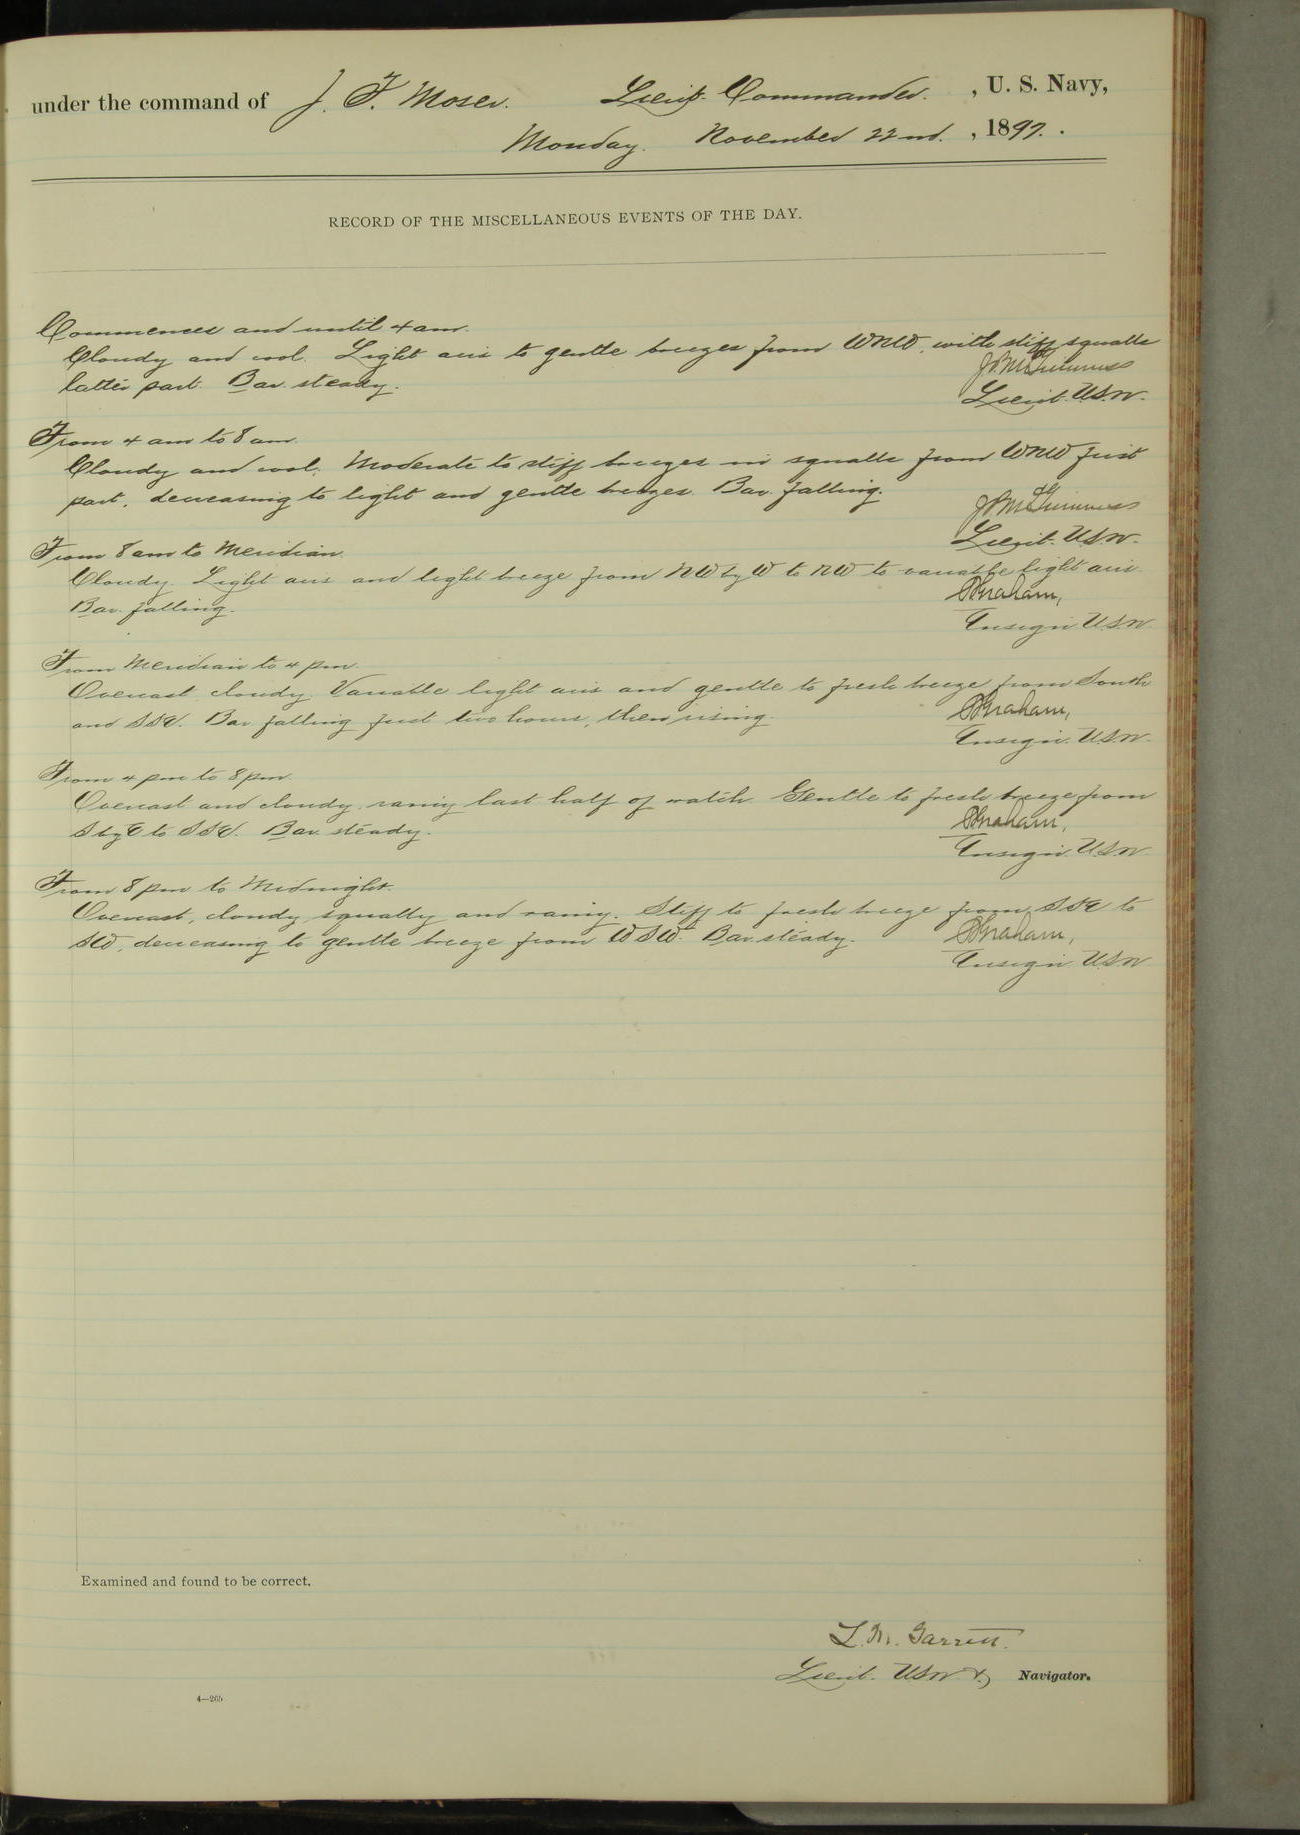 under the command of J. F. Moser. Lieut. Commander. , U. S. Navy,
Monday. November 22nd. , 1897. .
RECORD OF THE MISCELLANEOUS EVENTS OF THE DAY.
Commences and until 4 am.
Cloudy and cool. Light airs to gentle breezes from WNW, with stiff squalls
latter part. Bar. steady.
Lieut. U.S.N.
From 4 am to 8 am.
Cloudy and cool. Moderate to stiff breezes in squalls from WNW first
part, decreasing to light and gentle breezes. Bar. falling.
Lieut. U.S.N.
From 8 am to Meridian.
Cloudy. Light airs and light breeze from NW by W to NW to variable light airs.
Bar. falling.
Ensign U.S.N.
From Meridian to 4 pm.
Overcast cloudy. Variable light airs and gentle to fresh breeze from South
and SSE. Bar falling first two hours, then rising.
Ensign. U.S.N.
From 4 pm to 8 pm.
Overcast and cloudy, rainy last half of watch. Gentle to fresh breeze from
S by E to SSE. Bar. steady.
Ensign. U.S.N.
From 8 pm to Midnight.
Overcast, cloudy squally and rainy. Stiff to fresh breeze from SSE to
SW, decreasing to gentle breeze from WSW. Bar. steady.
Ensign U.S.N.
Examined and found to be correct.
L. M. Garrett.
Lieut. USN &, Navigator.
4—265